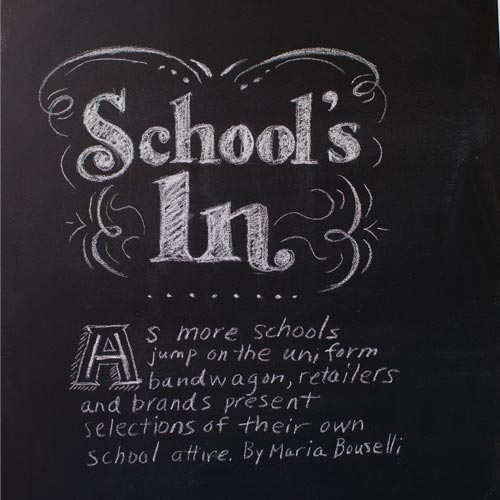 School's
In
As more schools
jump on the uniform
bandwagon, retailers
and brands present
selections of their own
school attire. By Maria Bouselli